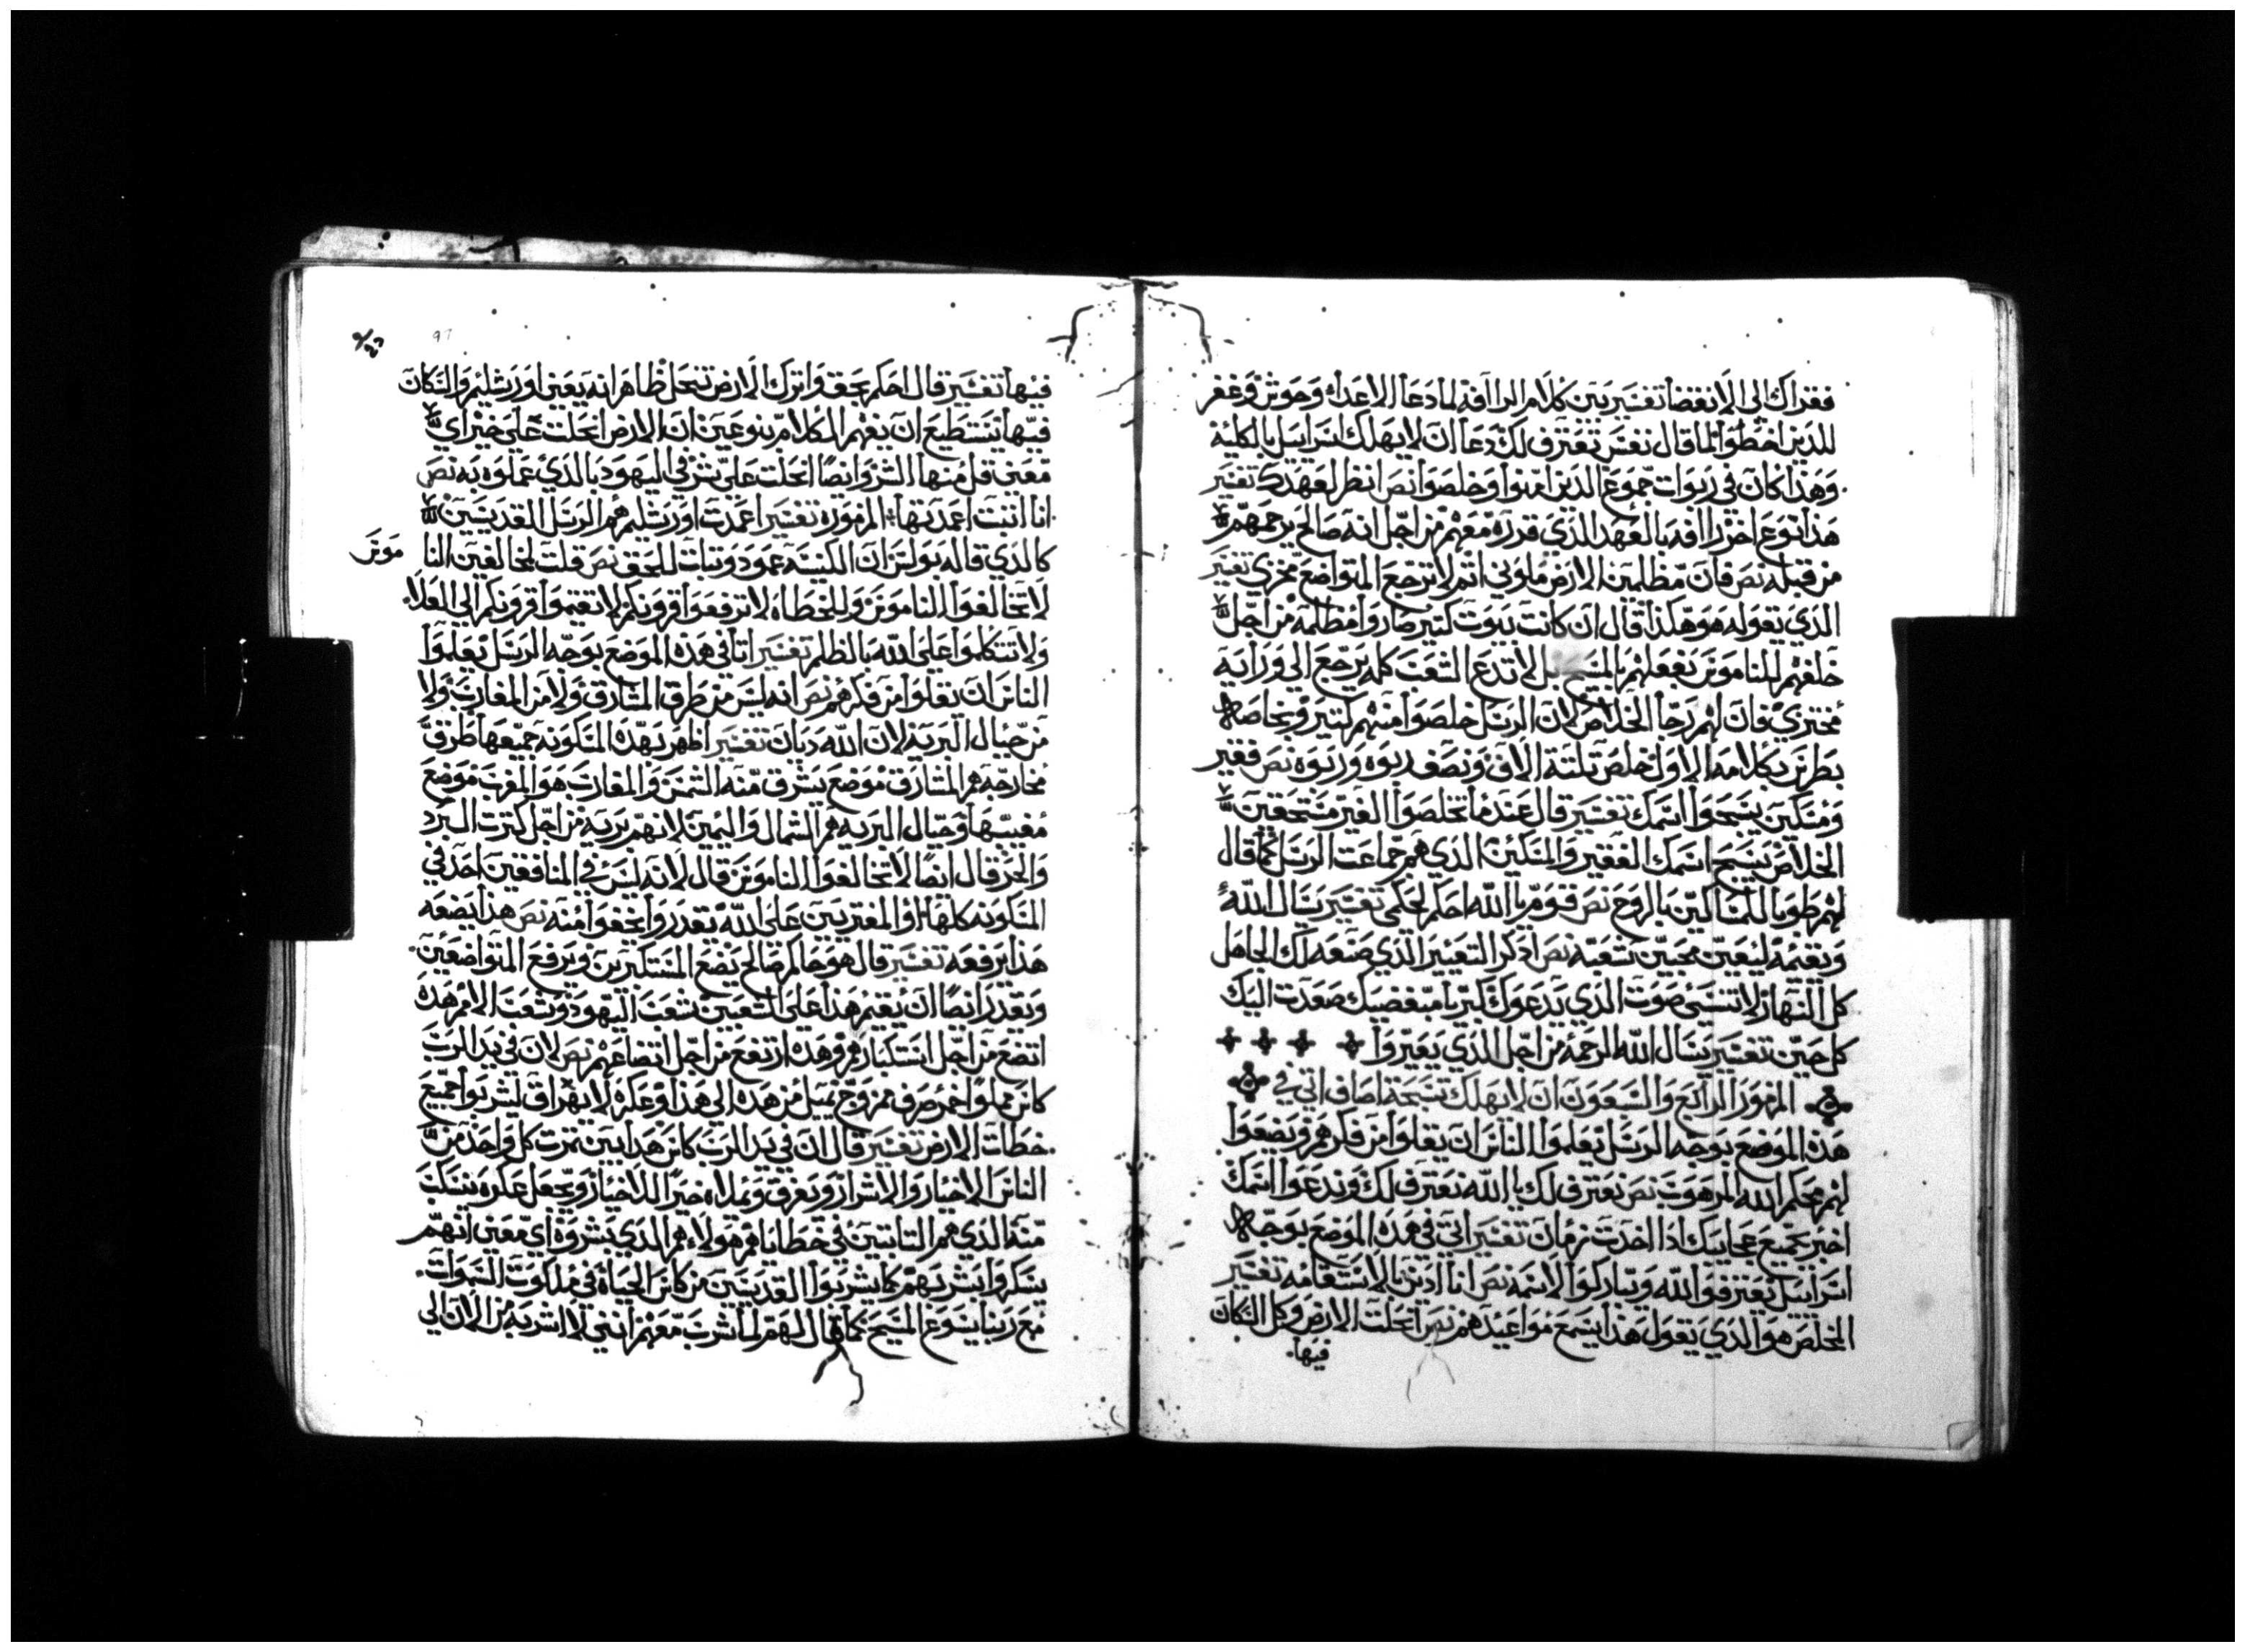 فقراك الى الانقضا تفسير بين كلام الرافه لما دعا الاعداء وحوش وغفر
للدين اخطوا لما قال نفس تعترف لك دعا ان لا يهلك اسراييل بالكليه
وهذا كان في ربوات جموع الدين امنوا وخلصوا نص انظر لعهدك تفسير
هذا نوع اخر رافه بالعهد الذي قدره معهم من اجل انه صالح يرحمهم
من قبله نص فان مظلمين الارض ملوني اتم لا ترجع المتواضع مخزي تفسير
الذي يقوله هو هكذا قال ان كانت بيوت كتير صاروا مظلمه من اجل
خلفهم للناموس بفعلهم بالمسيح بل لا تدع الشعب كله يرجع الى ورايه
مختزي فان لهم رجا الخلاص لان الرسل خلصوا منهم كتير وبخاصه
بطرس بكلامه الاول خلص تلتة الاف ونصف ربوه وربوه نص فقير
ومسكين يسبحوا اسمك تفسير قال عندما تخلصوا الغير مستحقين
الخلاص يسبح اسمك الفقير والمسكين الذي هم جماعت الرسل كما قال
لهم طوبا للمساكين بالروح نص قوم يا الله احكم لحكمي تفسير يسال الله
ونقيمه ليعين محبين شعبه نص ادكر التعيير الذي صنعه لك الجاهل
كل النهار لا تنسى صوت الذي يدعوك كبريا مبغضيك صعدت اليك
كل حين تفسير يسال الله الرحمه من اجل الذي يعيروا
المزمور الرابع والسبعون ان لا يهلك تسبحة اصاف اتي في
هذه الموضع بوجه الرسل يعلموا الناس ان يقلوا من فكرهم ويضعوا
لهم محكم الله المرهوب نص نعترف لك يا الله نعترف لك وندعوا اسمك
اخبر بجميع عجايبك ادا اخدت زمان تفسير اتي في هذه الموضع بوجه
اسراييل يعترفوا الله ويباركوا لاسمه نص انا ادين بالاستقامه تفسير
المخلص هو الذي يقول هذا يسمع مواعيدهم نص انحلت الارض وكل السكان
فيها
فيها تفسير قال احكم بحق واترك الارض تنحل ظاهر انه يعني اورشليم والسكان
فيها نستطيع ان نفهم الكلام بنوعين ان الارض انحلت على خير اي
معنى قل منها الشر وايضا انحلت على شر في اليهود بالذي عملوه به نص
انا اننت اعمدتها المزموره تفسير اعمدت اورشليم هم الرسل القديسين
كالذي قاله بولس ان الكنيسه عمود وتبات للحق نص قلت لمخالفين النا
موس
لا تخالفوا الناموس وللخطاه لا ترفعوا قرونكم لا تقيموا قرونكم الى العلا
ولا تتكلموا على الله بالظلم تفسير اتا في هذه الموضع بوجه الرسل يعلموا
الناس ان يقلوا من فكرهم نص انه ليس من طرق المشارق ولا من المغارب ولا
من جبال البريه لان الله ديان تفسير اظهر بهذه المسكونه جميعها طرق
مخارجه هم المشارق موضع يشرق منه الشمس والمغارب هو المغرب موضع
مغيبها وجبال البريه هم الشمال واليمين لانهم بريه من اجل كترت البرد
والحر قال ايضا لا تخالفوا الناموس قال لانه ليس في المنافقين احد في
المسكونه كلها او المفتريين على الله يقدروا يخفوا منه نص هذا يضعه
هذا يرفعه تفسير قال هو حاكم صالح يضع المستكبرين ويرفع المتواضعين
ونقدر ايضا ان نقيم هذا على الشعبين شعب اليهود وشعب الامم هذه
اتضع من اجل استكبارهم وهذه ارتفع من اجل اتضاعهم نص لان في يد الرب
كاس مملوا خمر صرف ممزوج يميل من هذه الى هذا وعكره لا يهراق ليشربوا جميع
خطات الارض تفسير قال ان في يد الرب كاس هذا يبين تمرت كل واحد من
الناس الاخيار والاشرار ويفرق ويملاه خيرا للاخيار ويجعل عكره ينسكب
منه الذي هم التابتين في خطاياهم هولاء هم الذي يشروه اي معنى انهم
يسكروا بشربهم كما يشربوا القديسين من كاس الحياه في ملكوت السموات
مع ربنا يسوع المسيح كما قال لهم لما شرب معهم انني لا اشربه من الان الى